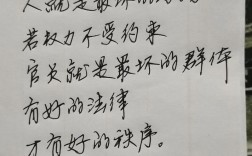 人就是最坏的
若权力不受约束
官员就是最坏的群体
有好的法律
才有好的秩序。